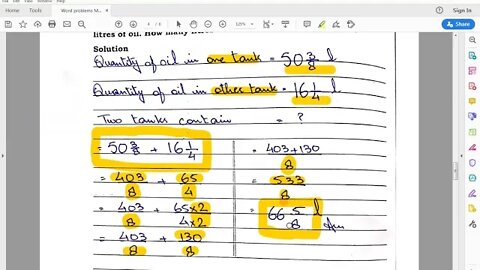 Word problems M...
Sign In
1 / 4
125%
Share
litres of oil. How many
Solution
Quantity of oil in one tank = 50 3/8 l
Quantity of oil in other tank = 16 1/4 l
Two tanks contain = ?
= 50 3/8 + 16 1/4
= 403/8 + 65/4
= 403/8 + 65×2/4×2
= 403/8 + 130/8
= 403+130/8
= 533/8
= 66 5/8 l